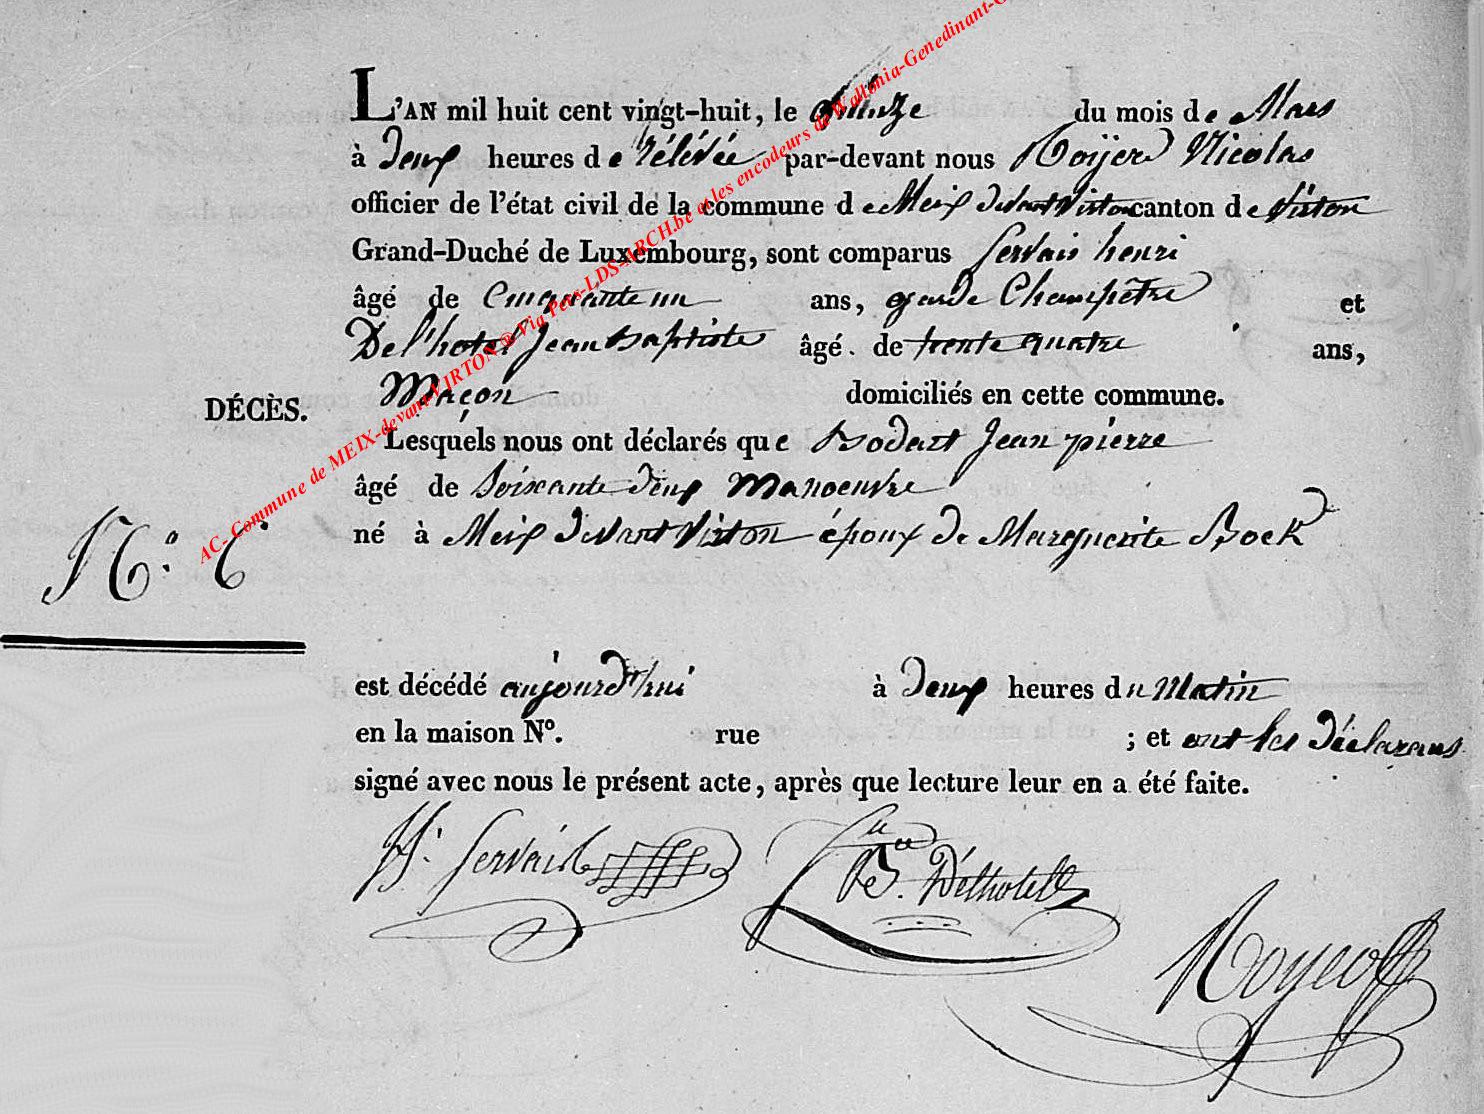 L'AN mil huit cent vingt-huit, le quinze du mois de Mars
à deux heures de rélévée par-devant nous Roijer Nicolas
officier de l'état civil de la commune de Meix devant Virton canton de Virton
Grand-Duché de Luxembourg, sont comparus Servais henri
âgé de Cinquante un ans, garde Champêtre et
Del'hotel Jean Baptiste âgé de trente quatre ans,
Maçon domiciliés en cette commune.
DÉCÈS.
Lesquels nous ont déclarés que Bodart Jean pierre
âgé de Soixante deux Manoeuvre
né à Meix devant Virton époux de Marguerite Bock
N.º 6
est décédé aujourd'hui à deux heures du Matin
en la maison Nº. rue ; et ont les Déclarans
signé avec nous le présent acte, après que lecture leur en a été faite.
H. Servais
JB. Délhotel
Royer
AC- Commune de MEIX-devant-VIRTON ® Via Pers-LDS-ARCH.be et les encodeurs de Wallonia-Genedinant-